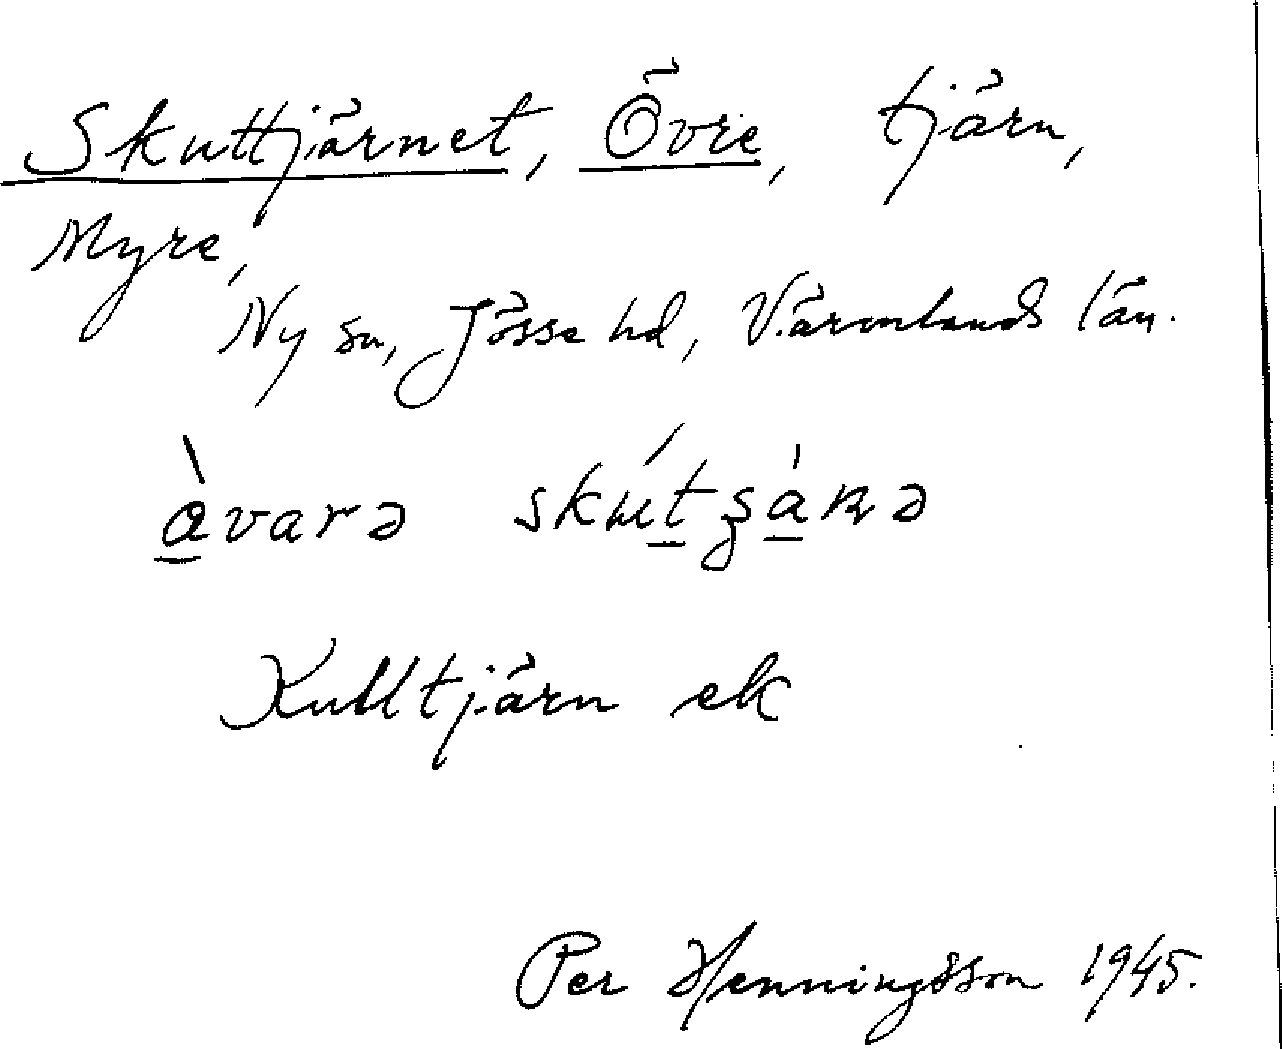 Skuttjärnet, Övre, tjärn,
Myre,
Ny sn, Jösse hd, Värmlands län.
àvarə skútʂánə
Kulltjärn ek
Per Henningsson 1945.